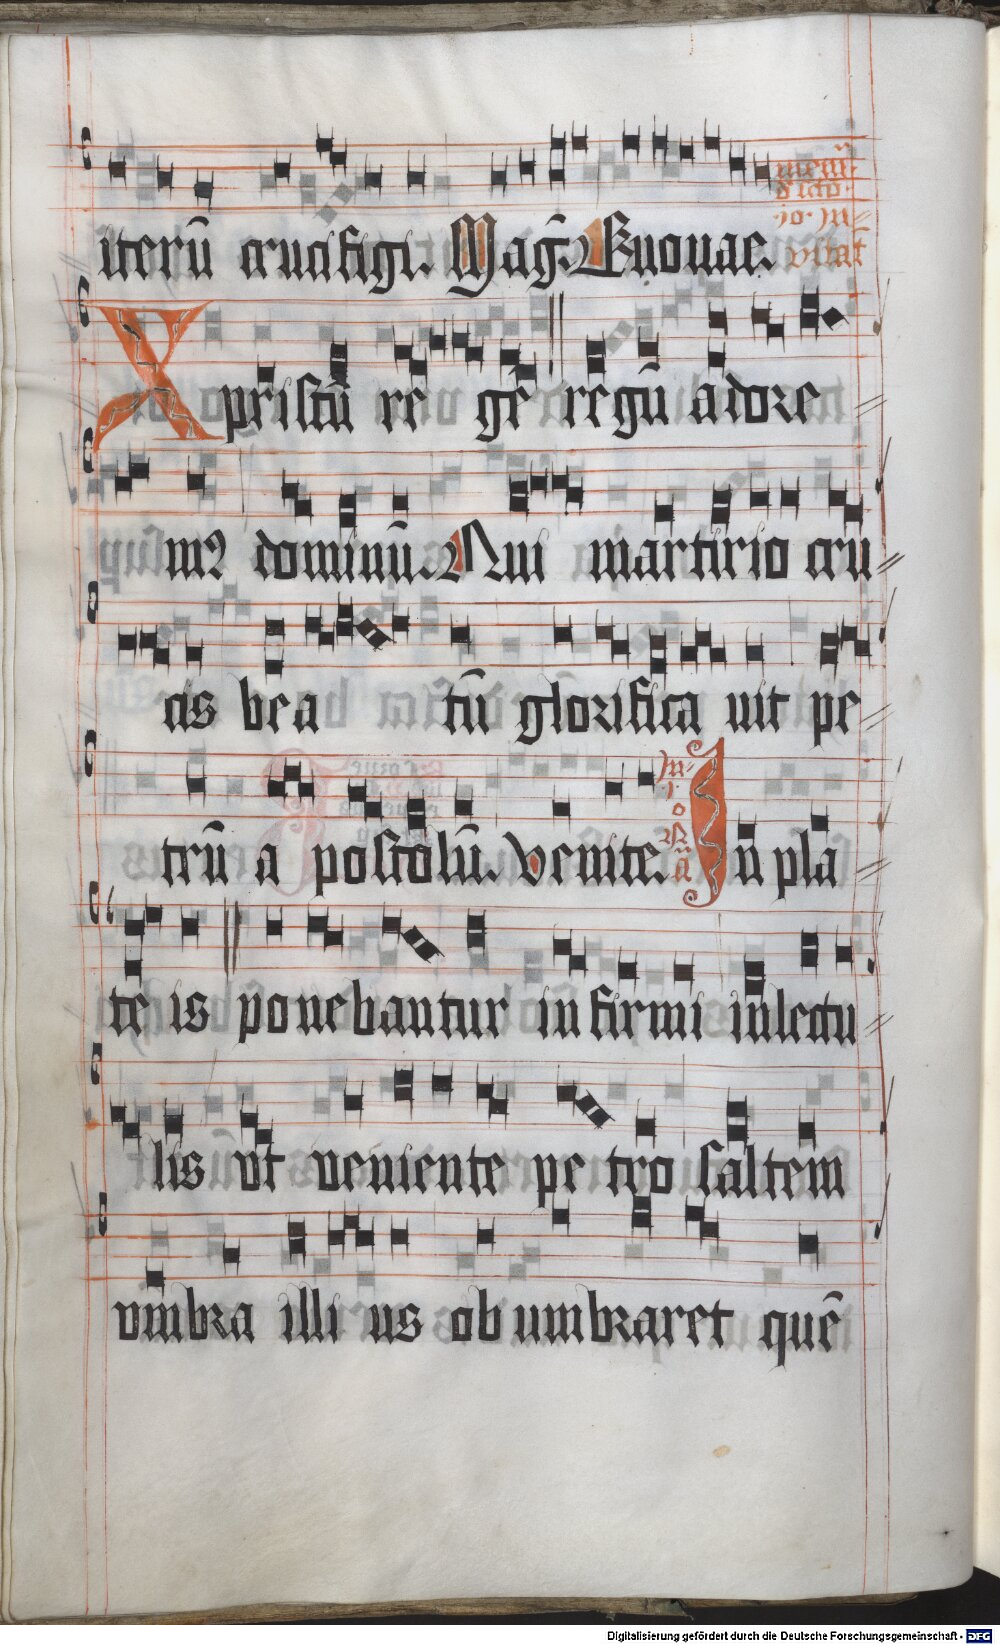 iterū crucifigi. Mag̃. Euouae.
Xpristū regē regū adore
mꝰ dominū. Qui martirio cru
cis beatū glorificauit pe
trū apostolū. Venite. In pla
teis ponebantur infirmi in lectu
lis vt veniente petro saltem
vmbra illius obumbraret quē
Digitalisierung gefördert durch die Deutsche Forschungsgemeinschaft - DFG